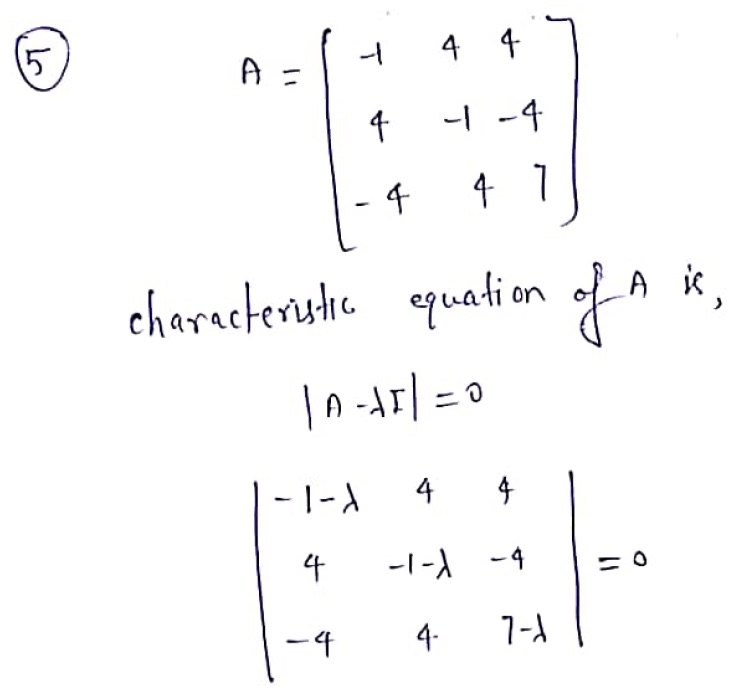 5
A = [ -1 4 4
4 -1 -4
-4 4 7 ]
characteristic equation of A is,
|A-λI| = 0
| -1-λ 4 4
4 -1-λ -4
-4 4 7-λ | = 0